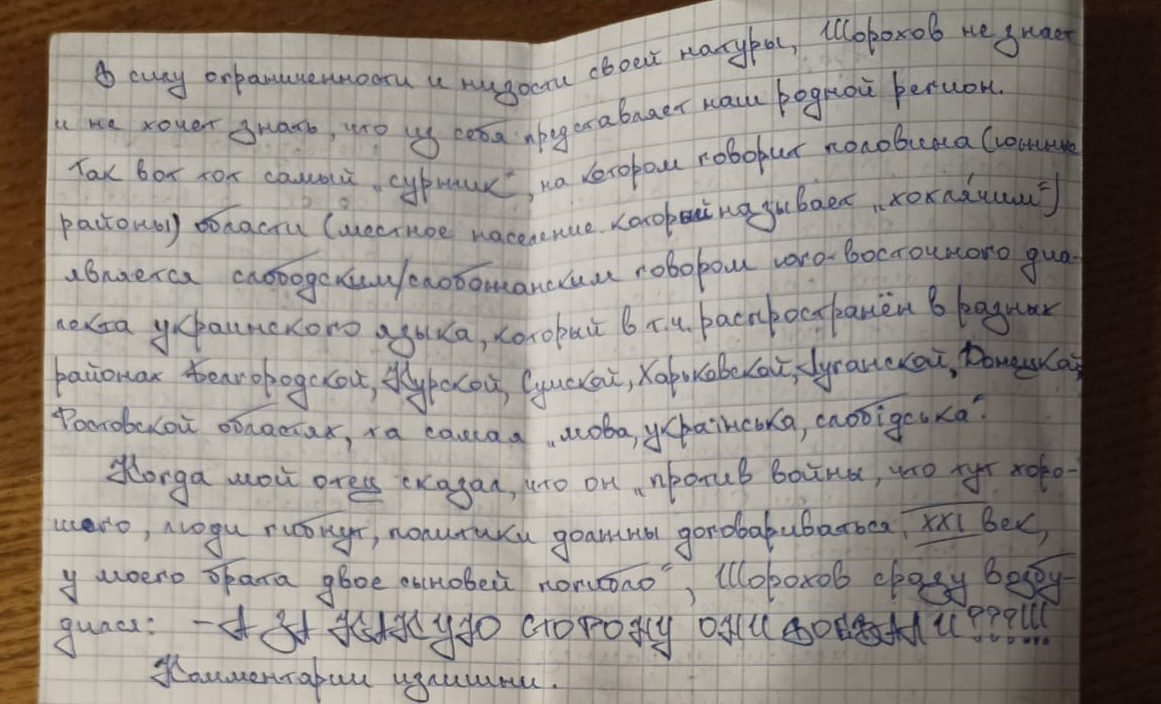 В силу ограниченности и низости своей натуры, Шорохов не знает
и не хочет знать, что из себя представляет наш родной регион.
Так вот тот самый „суржик“, на котором говорит половина (южные
районы) области (местное население который называет „хохля́чим“)
является слободским/слобожанским говором юго-восточного диа-
лекта украинского языка, который в т.ч. распространён в разных
районах Белгородской, Курской, Сумской, Харьковской, Луганской, Донецкой,
Ростовской областях, та самая „мова, українська, слобідська“.
Когда мой отец сказал, что он „против войны, что тут хоро-
шего, люди гибнут, политики должны договариваться, XXI век,
у моего брата двое сыновей погибло“, Шорохов сразу возбу-
дился: – А ЗА КАКУЮ СТОРОНУ ОНИ ВОЕВАЛИ???!!!
Комментарии излишни.